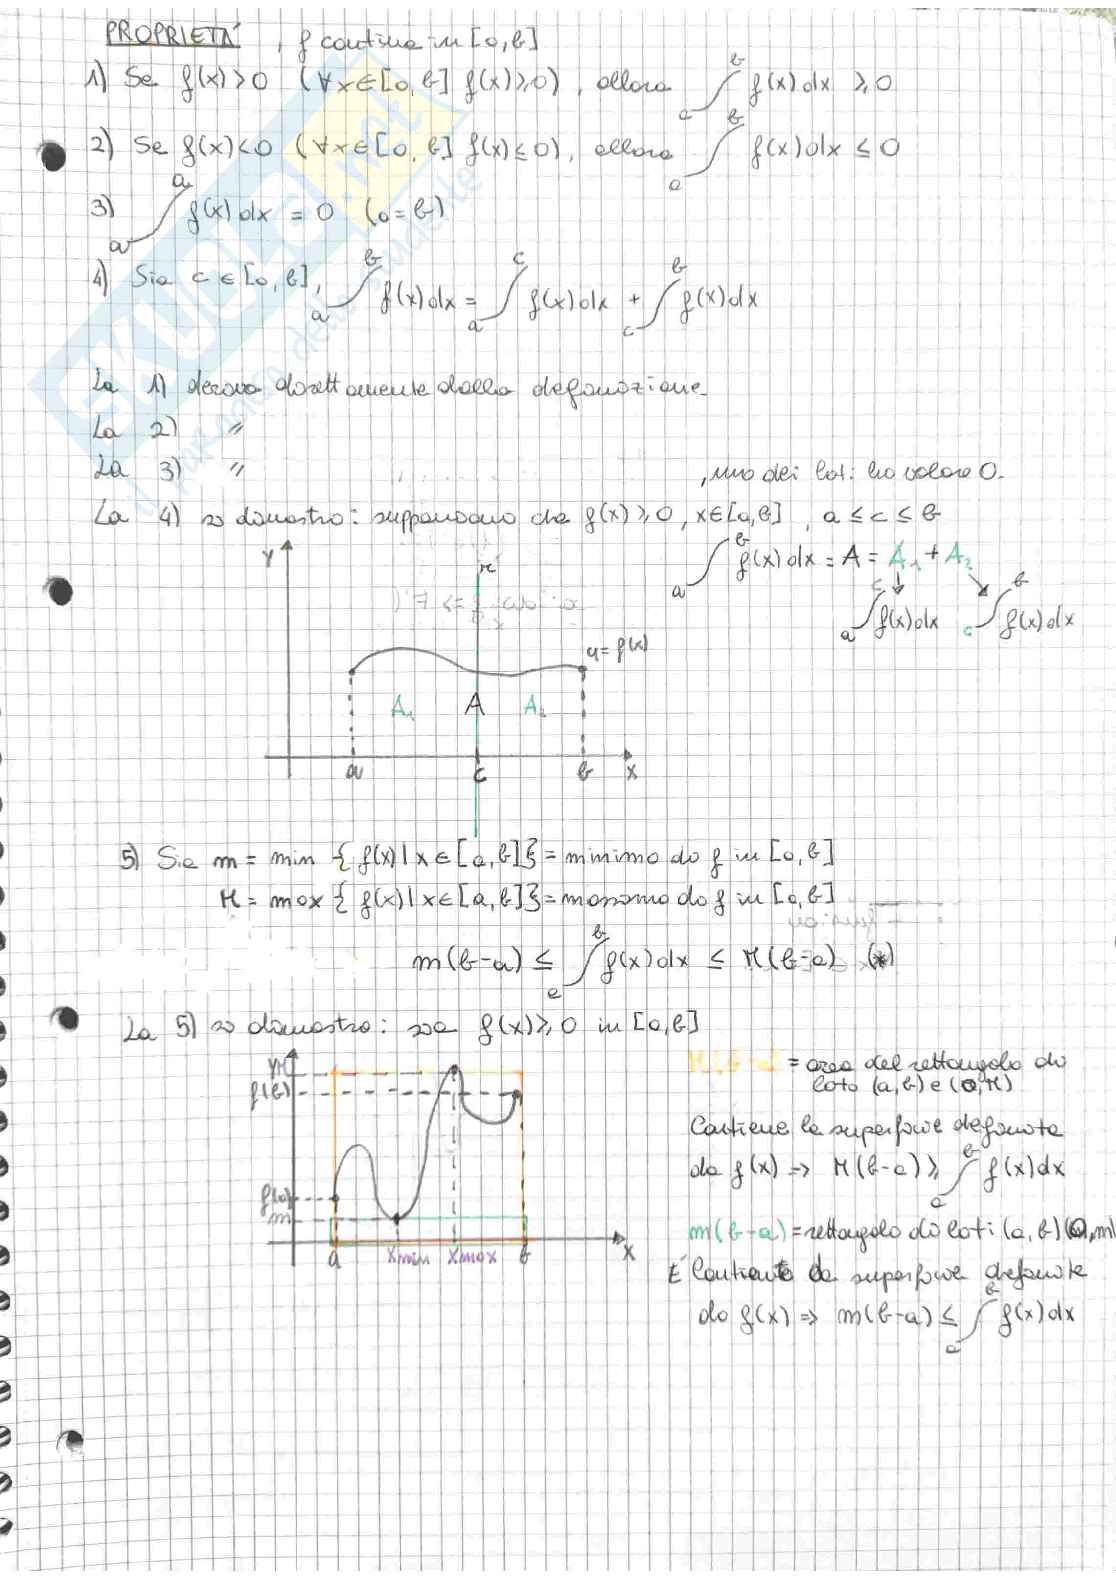 PROPRIETÀ, f continua in [a,b]
1) Se f(x)>0 (∀x∈[a,b] f(x)≥0), allora ∫_a^b f(x)dx ≥0
2) Se f(x)<0 (∀x∈[a,b] f(x)≤0), allora ∫_a^b f(x)dx ≤ 0
3) ∫_a^a f(x)dx = 0 (a=b)
4) Sia c∈[a,b], ∫_a^b f(x)dx = ∫_a^c f(x)dx + ∫_c^b f(x)dx
La 1) deriva direttamente dalla definizione
La 2) "
La 3) " , uno dei lati ha valore 0.
La 4) si dimostra: supponiamo che f(x)≥0, x∈[a,b], a≤c≤b
∫_a^b f(x)dx = A = A₁ + A₂
∫_a^c f(x)dx ∫_c^b f(x)dx
y
r
y=f(x)
A₁ A A₂
a c b x
5) Sia m = min {f(x)|x∈[a,b]} = minimo di f in [a,b]
M = max {f(x)|x∈[a,b]} = massimo di f in [a,b]
m(b-a) ≤ ∫_a^b f(x)dx ≤ M(b-a) (*)
La 5) si dimostra: sia f(x)≥0 in [a,b]
M(b-a) = area del rettangolo di
lato (a,b) e (0,M)
Contiene la superficie definita
da f(x) ⇒ M(b-a) ≥ ∫_a^b f(x)dx
m(b-a) = rettangolo di lati (a,b) (0,m)
È contenuto da superficie definita
da f(x) ⇒ m(b-a) ≤ ∫_a^b f(x)dx
M
f(b)
f(a)
m
a xmin xmax b x
SKUOLA.net
il paradiso dello studente